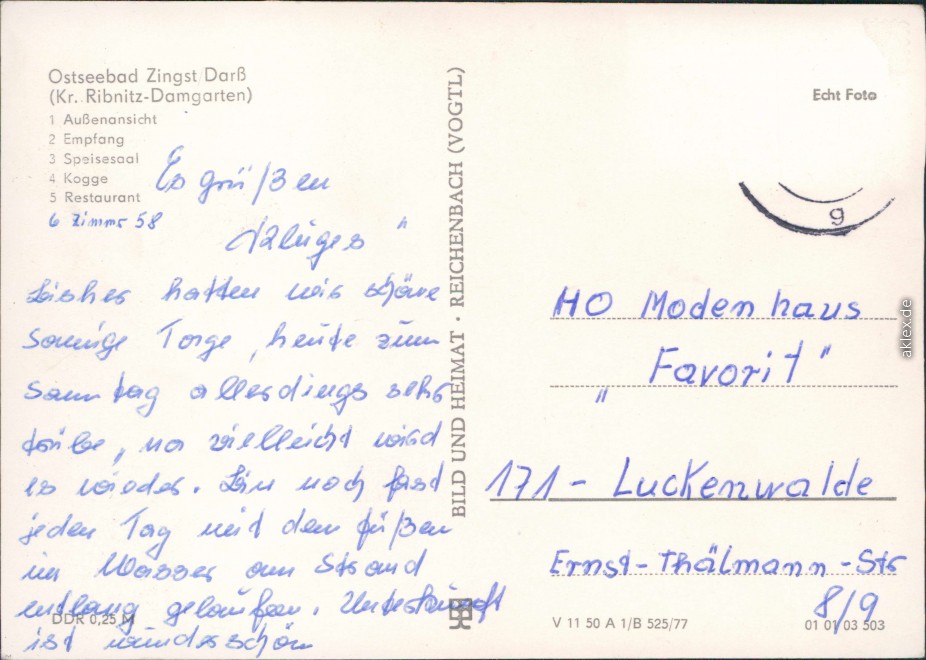 Ostseebad Zingst/Darß
(Kr. Ribnitz-Damgarten)
1 Außenansicht
2 Empfang
3 Speisesaal
4 Kogge
5 Restaurant
6 Zimmr 58
Es grüßen
Kluges"
Bisher hatten wir schöne
sonnige Tage, heute zum
Sonntag allerdings sehr
trübe, na vielleicht wird
es wieder. Bin noch fast
jeden Tag mit den Füßen
im Wasser am Strand
entlang gelaufen. Unterkunft
ist wunderschön
DDR 0,25 M
BILD UND HEIMAT · REICHENBACH (VOGTL)
Echt Foto
g
HO Modenhaus
"Favorit"
171 - Luckenwalde
Ernst-Thälmann-Str
8/9
V 11 50 A 1/B 525/77
01 01 03 503
aklex.de